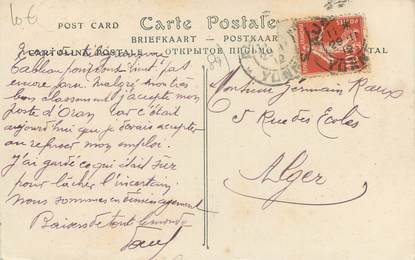 10€
POST CARD
Carte Postale
BRIEFKAART - POSTKAAR
CARTOLINA POSTALE - ОТКРЫТОЕ ПИСЬМО
TAL
Tableau pour tout vient pas
encore paru. malgré mon très
bon classement j'accepte mon
poste d'Oran car c'était
aujourd'hui que je devais accepter
ou refuser mon emploi.
J'ai gardé ce qui était sûr
pour lâcher l'incertain.
nous sommes en déménagement
Baisers de tout le monde
Paul
Monsieur Germain Raux
5 Rue des Ecoles
Alger